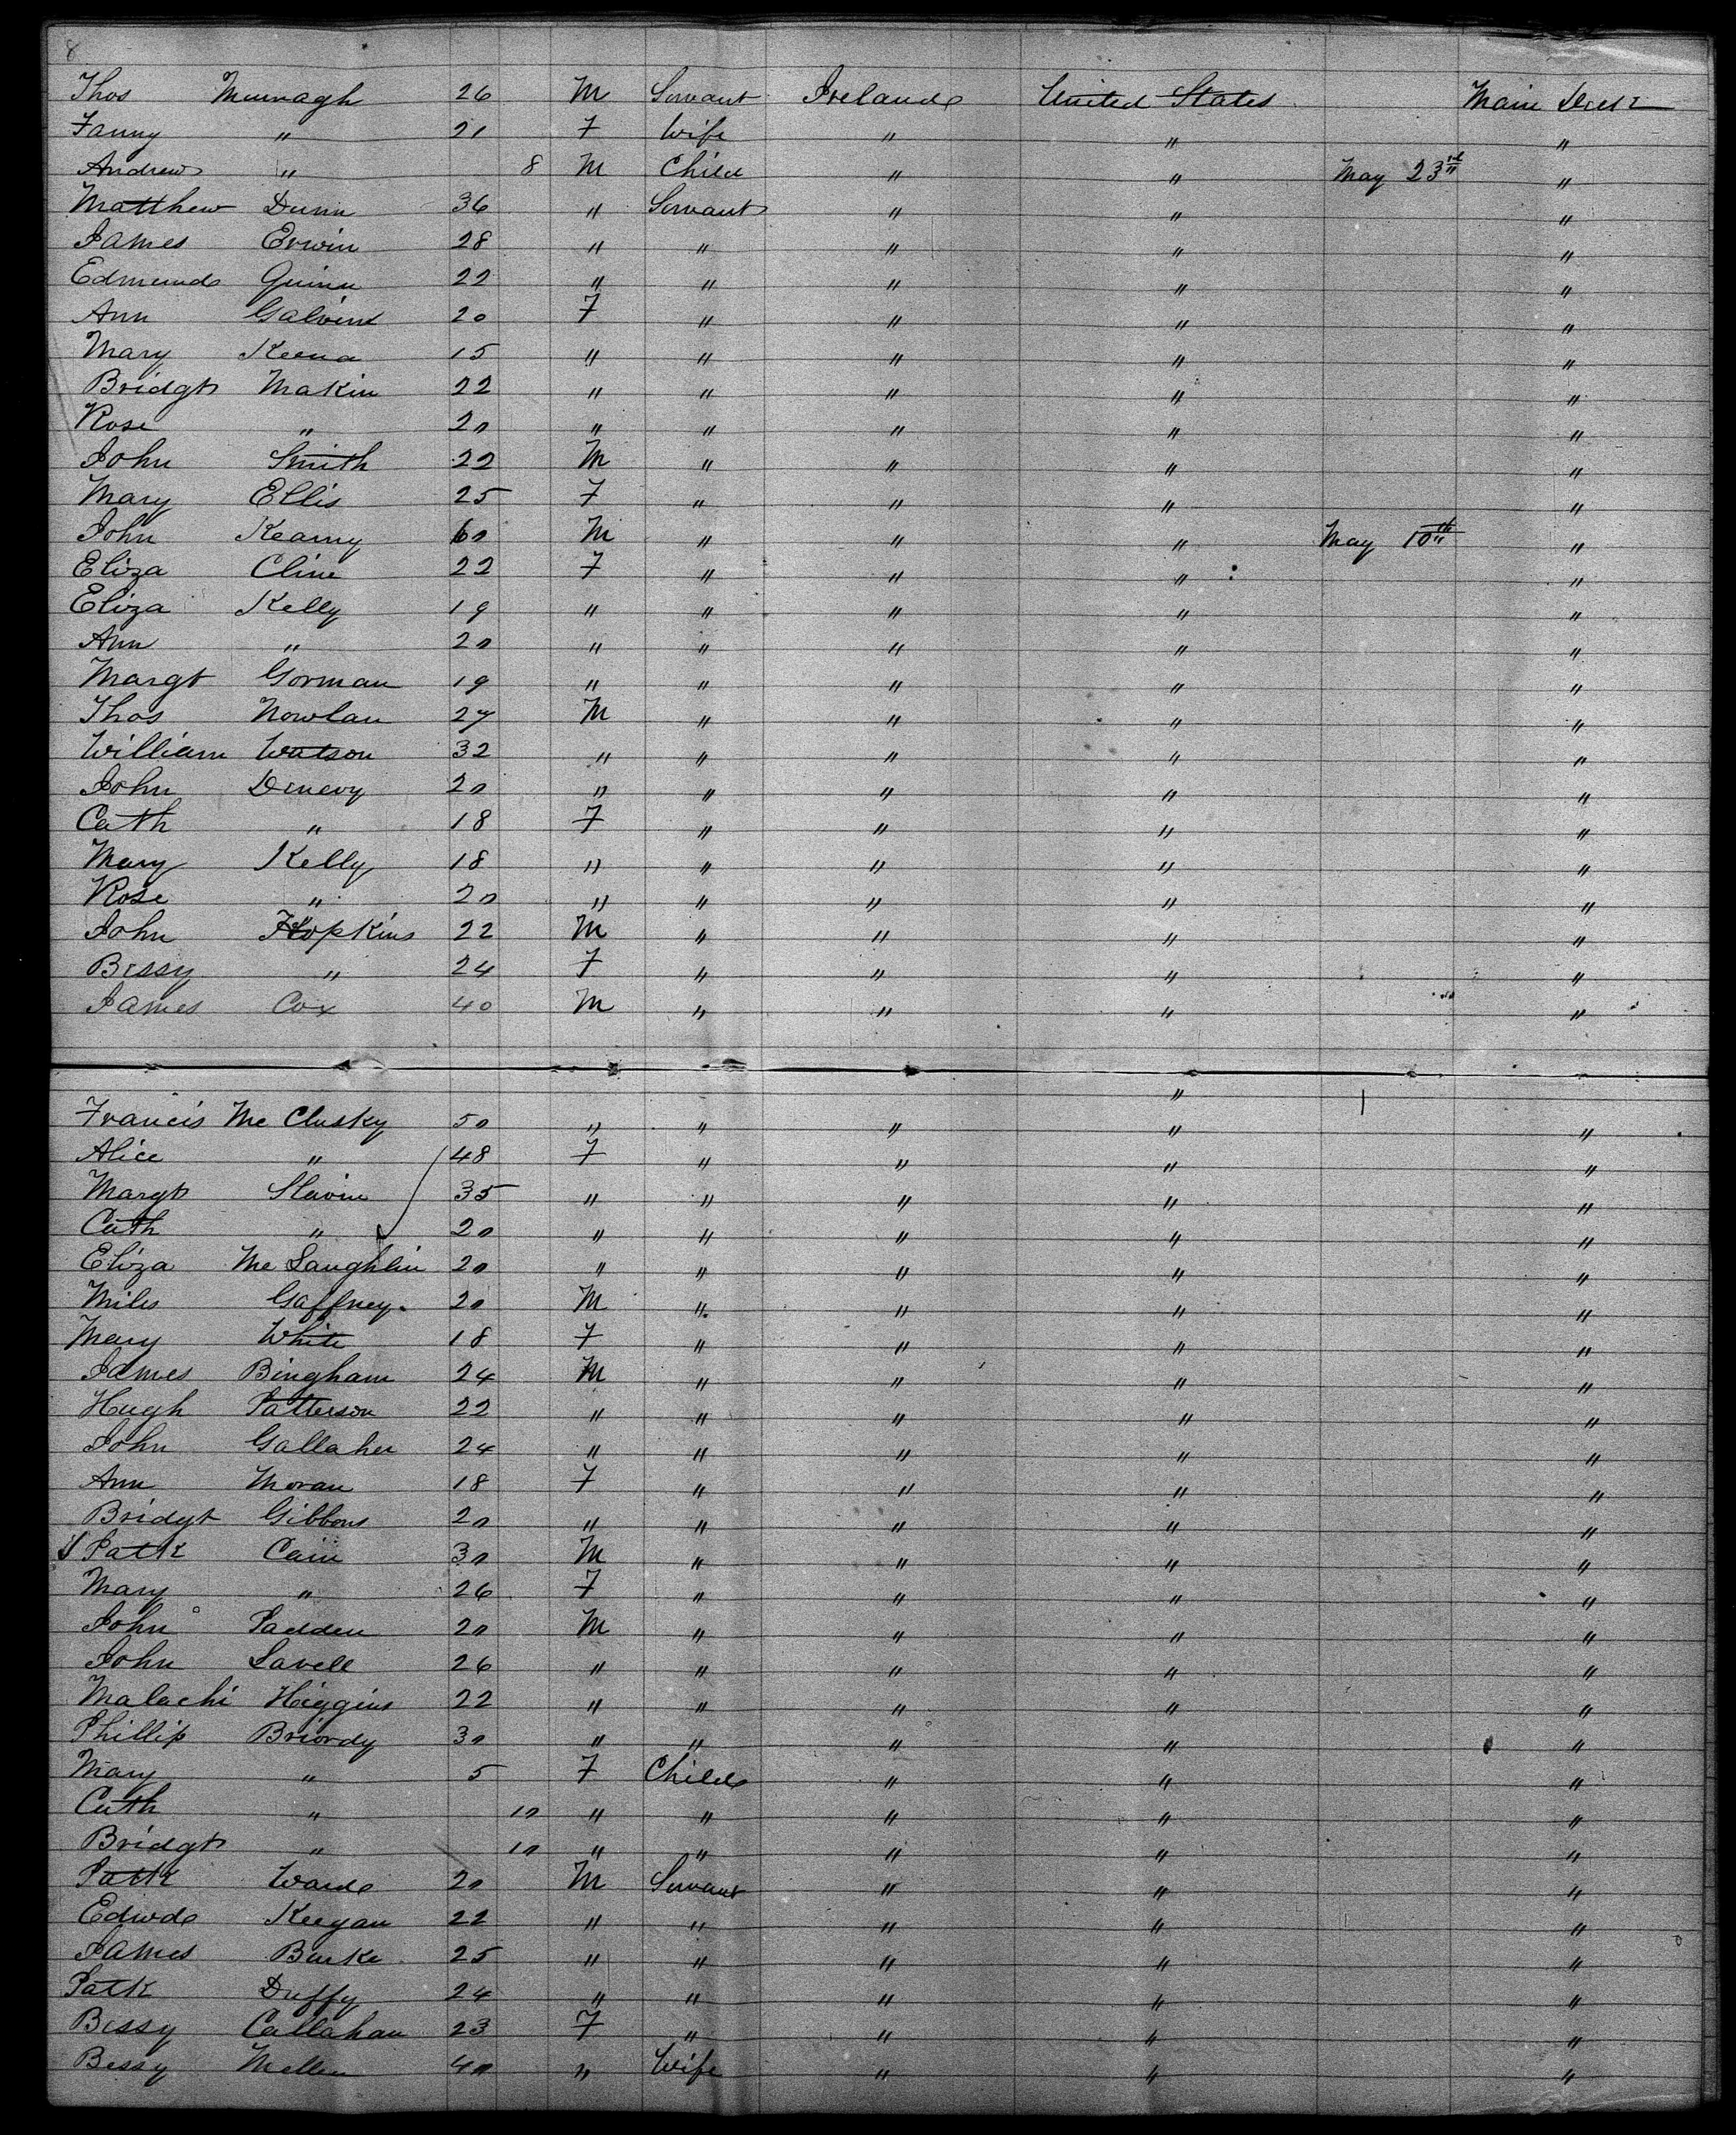 8
Thos Murragh 26 M Servant Ireland United States Main Deck
Fanny " 21 F Wife " " "
Andrew " 8 M Child " " May 23rd "
Matthew Dunn 36 " Servant " " "
James Erwin 28 " " " " "
Edmund Quinn 22 " " " " "
Ann Galvin 20 F " " " "
Mary Keena 15 " " " " "
Bridgt Makin 22 " " " " "
Rose " 20 " " " " "
John Smith 22 M " " " "
Mary Ellis 25 F " " " "
John Kearny 60 M " " " May 10th "
Eliza Cline 22 F " " " "
Eliza Kelly 19 " " " " "
Ann " 20 " " " " "
Margt Gorman 19 " " " " "
Thos Nowlan 27 M " " " "
William Watson 32 " " " " "
John Denevy 20 " " " " "
Cath " 18 F " " " "
Mary Kelly 18 " " " " "
Rose " 20 " " " " "
John Hopkins 22 M " " " "
Bessy " 24 F " " " "
James Cox 40 M " " " "
"
Francis Mc Clusky 50 " " " " "
Alice " 48 F " " " "
Margt Slavin 35 " " " " "
Cath " 20 " " " " "
Eliza Mc Laughlin 20 " " " " "
Miles Gaffney 20 M " " " "
Mary White 18 F " " " "
James Bingham 24 M " " " "
Hugh Patterson 22 " " " " "
John Gallaher 24 " " " " "
Ann Moran 18 F " " " "
Bridgt Gibbons 20 " " " " "
Patk Cain 30 M " " " "
Mary " 26 F " " " "
John Padden 20 M " " " "
John Lavell 26 " " " " "
Malachi Higgins 22 " " " " "
Phillip Briordy 30 " " " " "
Mary " 5 F Child " " "
Cath " 10 " " " " "
Bridgt " 10 " " " " "
Patk Ward 20 M Servant " " "
Edwd Keegan 22 " " " " "
James Burke 25 " " " " "
Patk Duffy 24 " " " " "
Bessy Callahan 23 F " " " "
Bessy Mellen 40 " Wife " " "